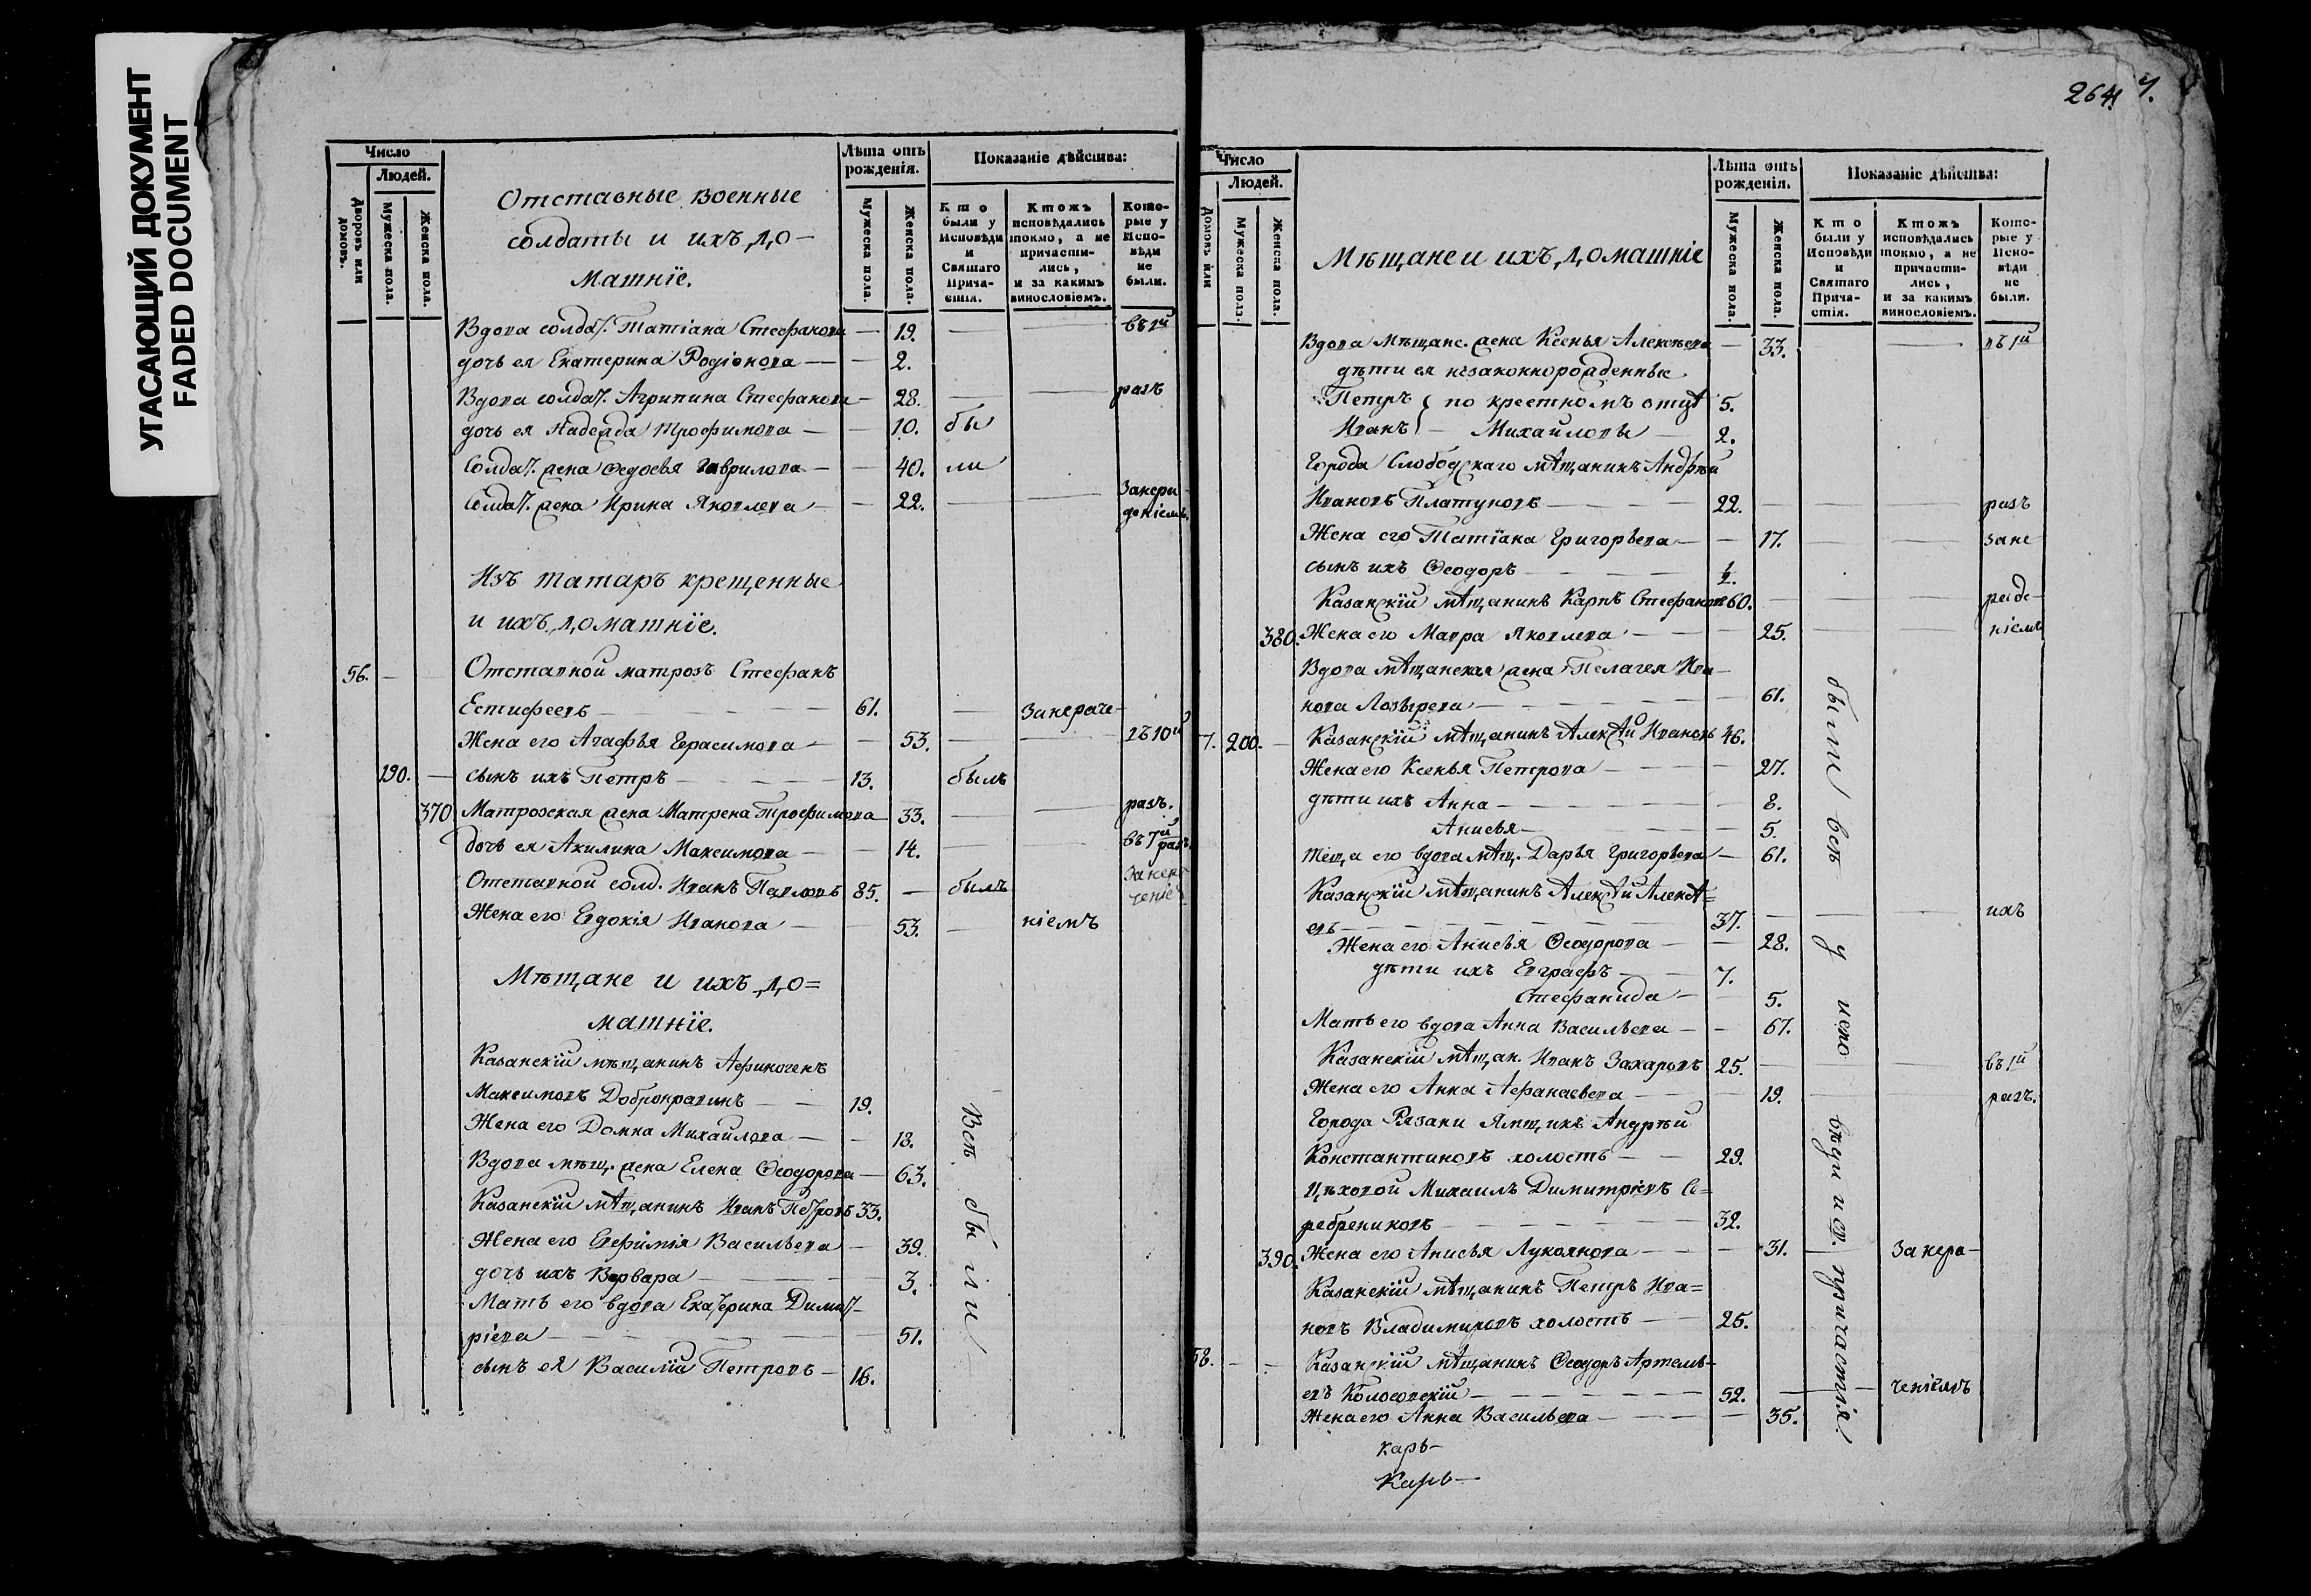 УГАСАЮЩИЙ ДОКУМЕНТ
FADED DOCUMENT
Число
Людей.
Дворовъ или домовъ.
Мужеска пола.
Женска пола.
Отставные военные
солдаты и ихъ до-
машніе.
Лѣта отъ рожденія.
Мужеска пола.
Женска пола.
Показаніе дѣйства:
Кто были у Исповѣди и Святаго Прича-стія.
Ктожъ исповѣдались токмо, а не причасти-лись, и за какимъ винословіемъ.
Кото-рые у Испо-вѣди не были.
Вдова солдат. Татіана Стефанова — 19. — въ 1й
дочь ея Екатерина Родіонова — 2.
Вдова солдат. Агрипина Стефанова — 28. — разъ
дочь ея Надежда Трофимова — 10. бы
Солдат. жена Федосья Гаврилова — 40. ли
Солдат. жена Ирина Яковлева — 22. —
Изъ татаръ крещенные
и ихъ домашніе.
56. — Отставной матрозъ Стефанъ
Естифеевъ — 61. —
Жена его Агафья Герасимова — 53. —
190. — сынъ ихъ Петръ — 13. былъ
370 Матрозская жена Матрена Трофимова 33. — разъ.
дочь ея Акилина Максимова — 14. —
Отставной солд. Иванъ Павловъ 85. — былъ
Жена его Евдокія Иванова — 53. — ніемъ
Мѣщане и ихъ до=
машніе.
Казанскій мѣщанинъ Афиногенъ
Максимовъ Добронравинъ — 19.
Жена его Домна Михайлова — 18.
Вдова мѣщ. жена Елена Феодорова — 63.
Казанскій мѣщанинъ Иванъ Петровъ 33.
Жена его Евфимія Васильева — 39.
дочь ихъ Варвара — 3.
Мать его вдова Екатерина Димит-
ріева — 51.
сынъ ея Василій Петровъ — 16.
Всѣ были
264
Число
Людей.
Домовъ или
Мужеска пола.
Женска пола.
Мѣщане и ихъ домашніе
Лѣта отъ рожденія.
Мужеска пола.
Женска пола.
Показаніе дѣйства:
Кто были у Исповѣди и Святаго Прича-стія.
Ктожъ исповѣдались токмо, а не причасти-лись, и за какимъ винословіемъ.
Кото-рые у Испо-вѣди не были.
Вдова мѣщанс. жена Ксенья Алексѣева — 33. — въ 1й
дѣти ея незаконнорожденные
Петръ } по крестномъ отцѣ 5.
Иванъ } — Михайловы — 2.
Города Слободскаго мѣщанинъ Андрей
Ивановъ Платуновъ — 22. — разъ
Жена его Татіана Григорьева — 17. — зане
сынъ ихъ Феодоръ — 1/2.
Казанскій мѣщанинъ Карпъ Стефановъ 60. —
380. Жена его Мавра Яковлева — 25. — ніемъ
Вдова мѣщанская жена Пелагея Ива-
нова — 61.
7. 200. — Казанскій мѣщанинъ Алексѣй Ивановъ 46.
Жена его Ксенья Петрова — 27.
дѣти ихъ Анна — 8.
Анисья — 5.
теща его вдова мѣщ. Дарья Григорьева — 61.
Казанскій мѣщанинъ Алексѣй Алексѣ=
евъ — 37. — ихъ
Жена его Анисья Феодорова — 28.
дѣти ихъ Евграфъ — 7.
Стефанида — 5.
Мать его вдова Анна Васильева — 67.
Казанскій мѣщан. Иванъ Захаровъ 25. — въ 1й
Жена его Анна Афанасьева — 19. — разъ.
Города Рязани ямщикъ Андрей
Константиновъ холостъ — 29.
Цѣховой Михаилъ Димитріевъ Се=
ребрениковъ — 32.
390. Жена его Анисья Лукоянова — 31. —
Казанскій мѣщанинъ Петръ Ива=
новъ Владимировъ холостъ — 25.
58. — Казанскій мѣщанинъ Феодоръ Артемь-
евъ Колосовскій — 52. —
Жена его Анна Васильева — 35.
были всѣ у испо вѣди и св. причастія.
Карь-
Карь-